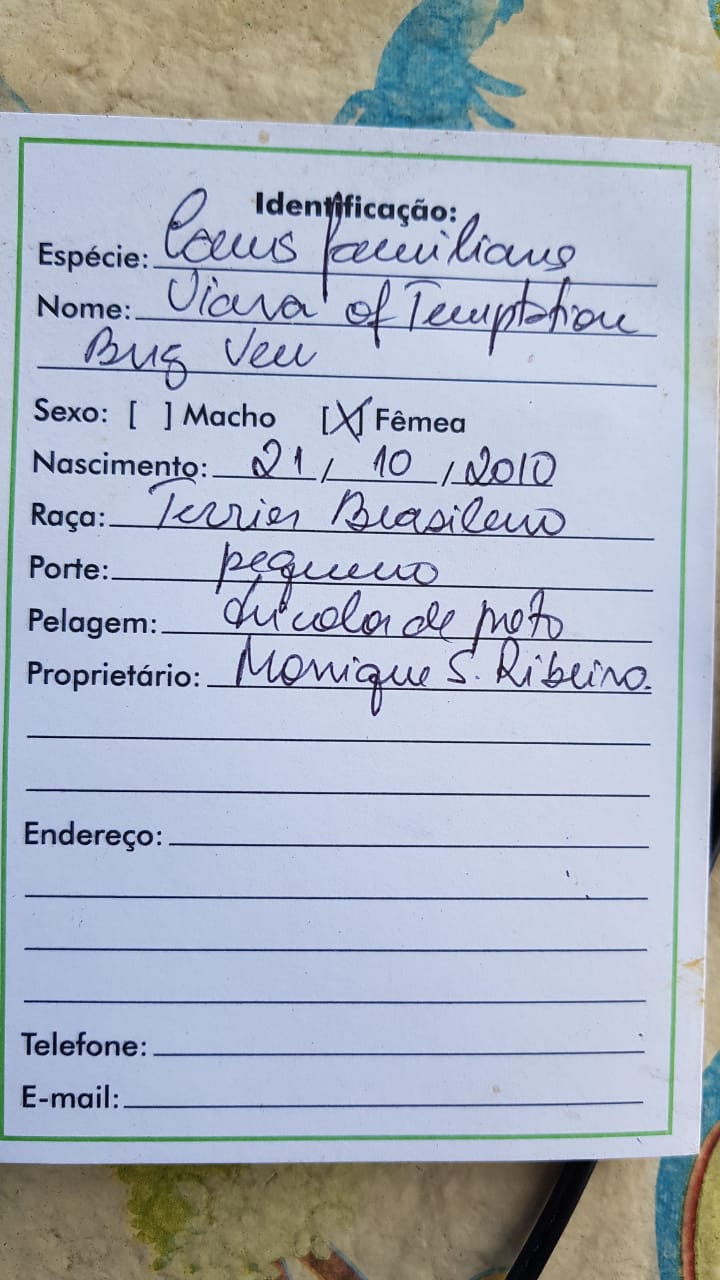 Identificação:
Espécie: Canis familiaris
Nome: Viara of Temptation
Bug Ven
Sexo: [ ] Macho [X] Fêmea
Nascimento: 21 / 10 / 2010
Raça: Terrier Brasileiro
Porte: pequeno
Pelagem: tricolor de preto
Proprietário: Monique S. Ribeiro.
Endereço:
Telefone:
E-mail: